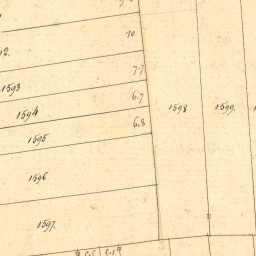 10.
92.
7.7
1593
6.7
1594
6.8
1595
1598
1599.
1596
1597.